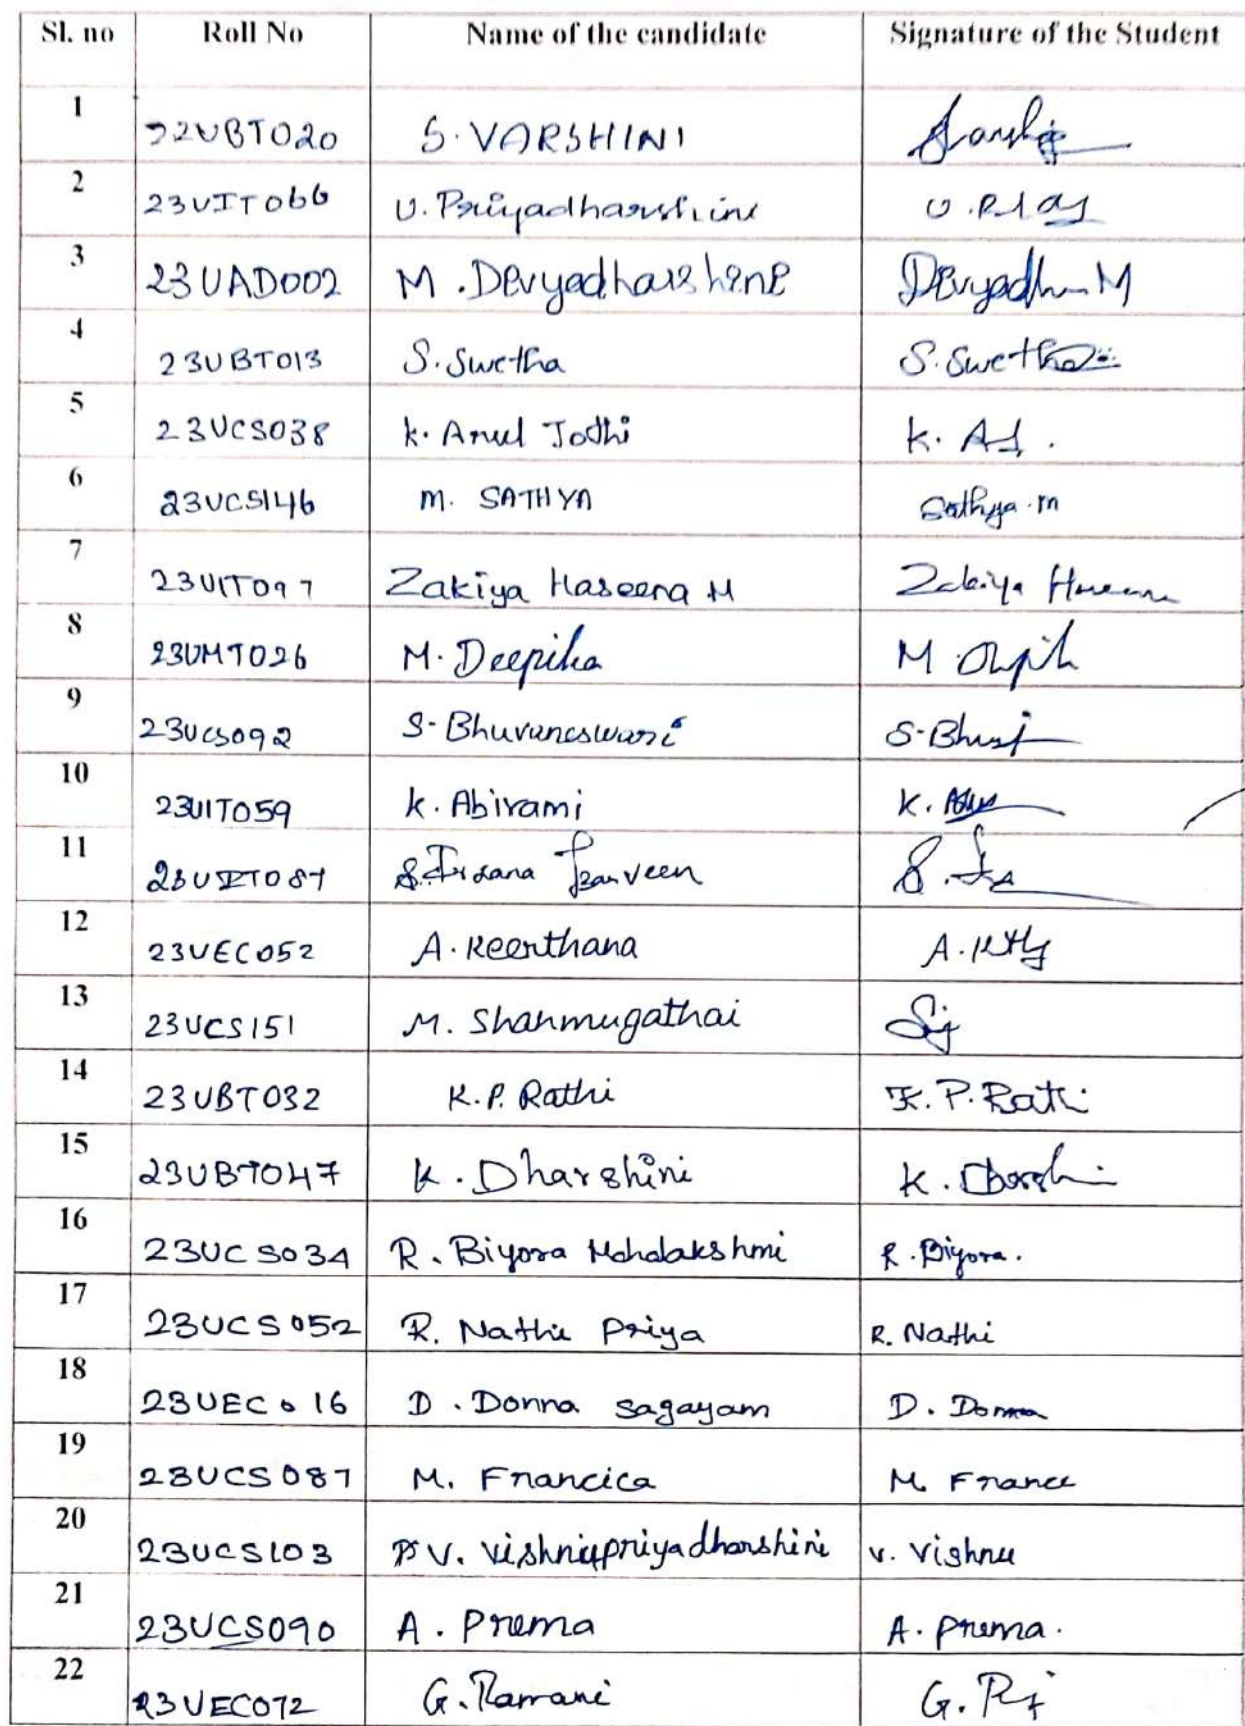 Sl. no Roll No Name of the candidate Signature of the Student
1 22UBT020 S. VARSHINI
2 23UIT066 U. Priyadharshini
3 23UAD002 M. Divyadharshini Divyadh M
4 23UBT013 S. Swetha S. Swetha
5 23UCS038 K. Arul Jothi K. AJ.
6 23UCS146 M. SATHYA Sathya. m
7 23UIT097 Zakiya Haseena M Zakiya
8 23UMT026 M. Deepika M
9 23UCS092 S. Bhuvaneswari
10 23UIT059 K. Abirami K.
11 S. Irsana Parveen S.
12 23UEC052 A. Keerthana A.
13 23UCS151 M. Shanmugathai
14 23UBT032 K.P. Rathi K. P. Rathi
15 23UBT047 K. Dharshini K.
16 23UCS034 R. Biyora Mahalakshmi R. Biyora.
17 23UCS052 R. Nathi Priya R. Nathi
18 23UEC016 D. Donna Sagayam D. Donna
19 23UCS087 M. Francica M. France
20 23UCS103 V. Vishnupriyadharshini V. Vishnu
21 23UCS090 A. Prema A. Prema.
22 23UEC072 G. Ramani G.